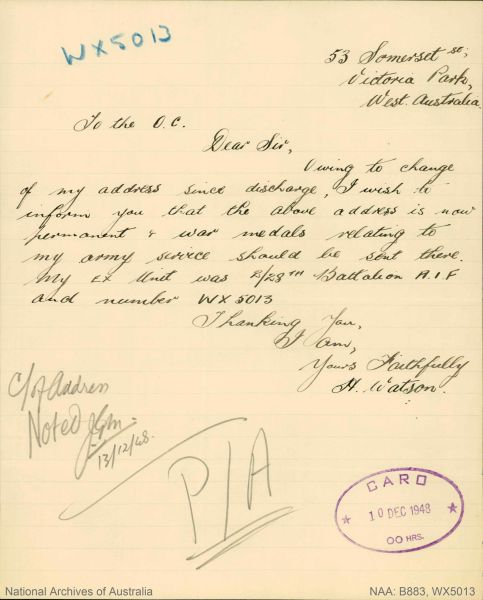 WX5013
53 Somerset St;
Victoria Park,
West. Australia.
To the O.C.
Dear Sir,
Owing to change
of my address since discharge, I wish to
inform you that the above address is now
permanent & war medals relating to
my army service should be sent there.
My Ex Unit was 2/28TH Battalion A.I.F
and number WX5013
Thanking You,
I am,
Yours Faithfully
H. Watson.
C/of Address
Noted
13/12/48.
P/A
CARO
10 DEC 1948
00 HRS.
National Archives of Australia
NAA: B883, WX5013